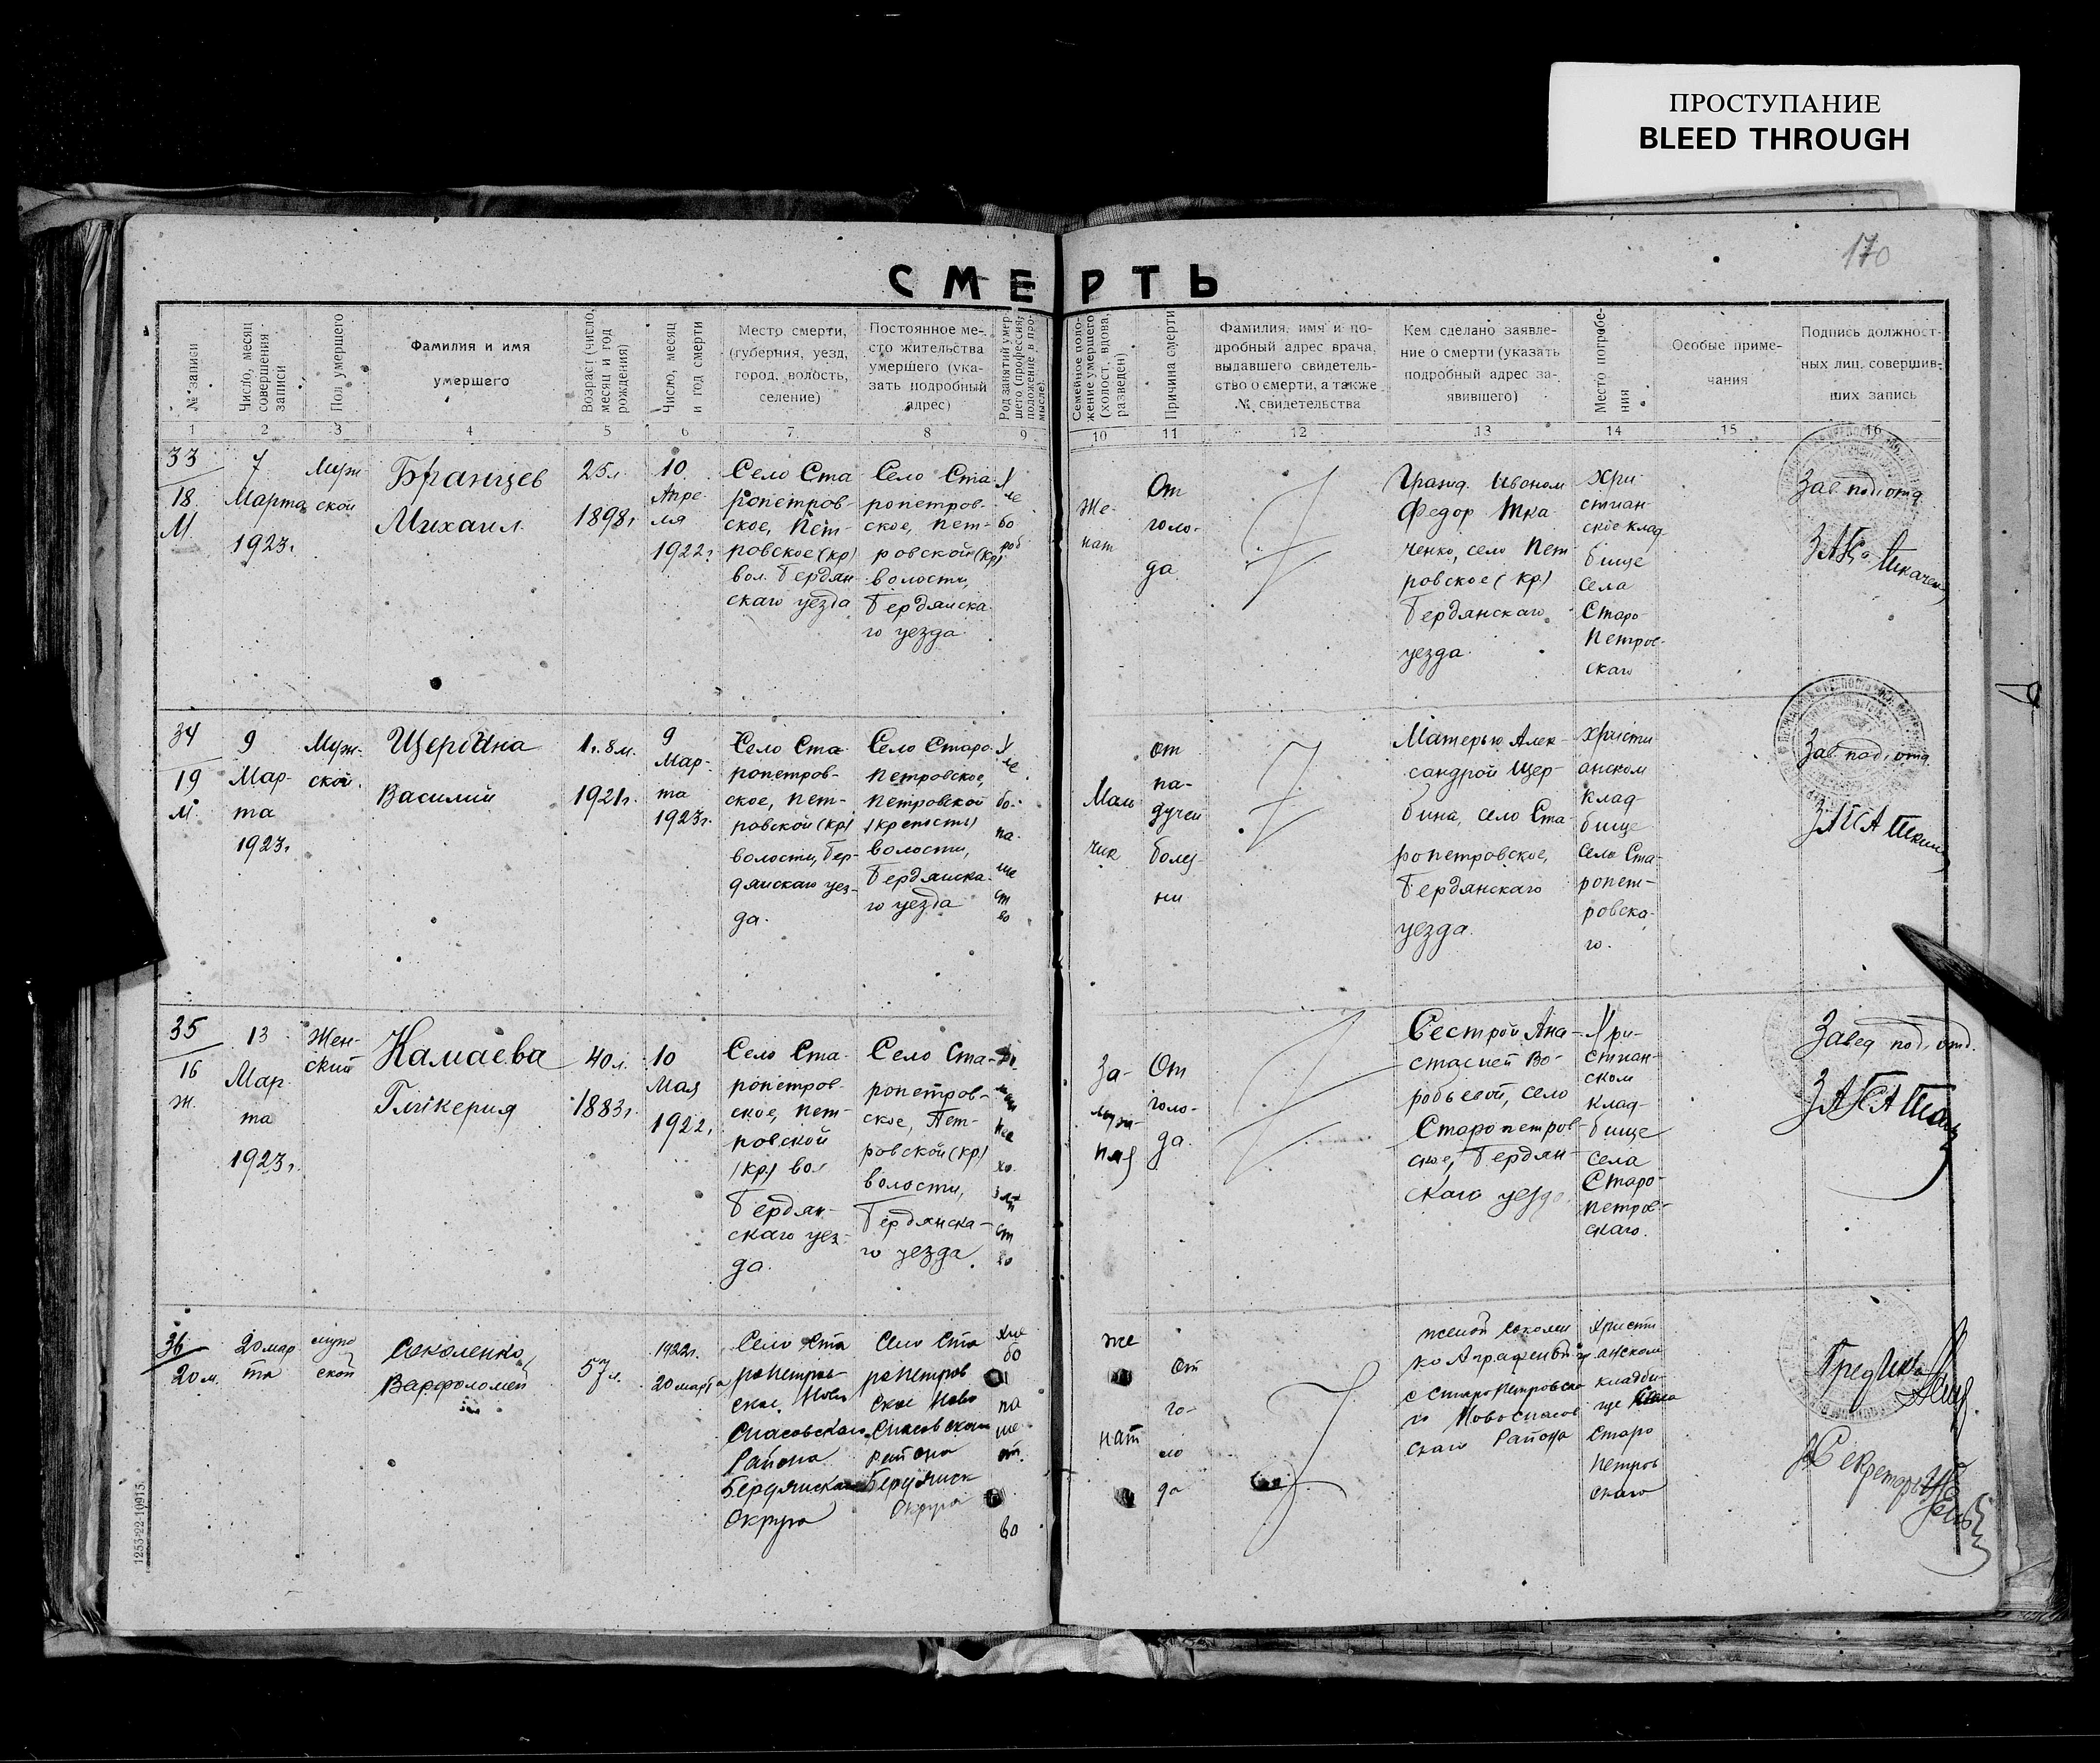 ПРОСТУПАНИЕ
BLEED THROUGH
170
СМЕРТЬ
№ записи
Число, месяц совершения записи
Пол умершего
Фамилия и имя
умершего
Возраст (число, месяц и год рождения)
Число, месяц и год смерти
Место смерти,
(губерния, уезд,
город, волость,
селение)
Постоянное ме-
сто жительства
умершего (ука-
зать подробный
адрес)
Род занятий умер-
шего (профессия,
положение в про-
мысле).
Семейное поло-
жение умершего
(холост, вдова,
разведен)
Причина смерти
Фамилия, имя и по-
дробный адрес врача,
выдавшего свидетель-
ство о смерти, а также
№ свидетельства
Кем сделано заявле-
ние о смерти (указать
подробный адрес за-
явившего)
Место погребе-
ния
Особые приме-
чания
Подпись должност-
ных лиц, совершив-
ших запись
1 2 3 4 5 6 7 8 9 10 11 12 13 14 15 16
33
18
М
7
Марта
1923г.
Муж-
ской
Бранцев
Михаил
25л.
1898г
10
Апре-
ля
1922г.
Село Ста
ропетров-
ское, Пет-
ровское (кр)
вол. Бердян-
скаго уезда
Село Ста
ропетров-
ское, Пет-
ровской (кр)
волости,
Бердянска-
го уезда
Х
ле
бо
роб
Же-
нат
От
голо-
да
Гражд. Иваном
Федор Тка
ченко, село Пет
ровское (кр)
Бердянскаго
уезда
Хри
стиан
ское клад
бище
села
Старо
Петров-
скаго
Зав. под. отд.
34
19
М.
9
Мар-
та
1923г
Муж-
ской.
Щербина
Василий
1г. 8м.
1921г.
9
Мар-
та
1923г.
Село Ста
ропетров-
ское, Пет-
ровской (кр)
волости, Бер-
дянскаго уез-
да.
Село Старо-
Петровское,
Петровской
(крепости)
волости,
Бердянска-
го уезда
Х
ле
бо-
па-
ше
ст
во
Маль
чик
от
па-
дучей
болез-
ни
Матерью Алек-
сандрой Щер-
бина, село Ста-
ропетровское,
Бердянскаго
уезда.
Христи
анском
клад-
бище
села Ста-
ропет-
ровска-
го.
Зав. под. отд.
35
16
Ж.
13
Мар
та
1923г.
Жен-
ский
Камаева
Гликерия
40л.
1883г.
10
Мая
1922г
Село Ста-
ропетров-
ское, Пет-
ровской
(кр) вол
Бердян-
скаго уез-
да.
Село Ста-
ропетров-
ское, Пет-
ровской (кр)
волости,
Бердянска-
го уезда.
За-
муж-
няя
От
голо-
да.
Сестрой Ана-
стасией Во-
робьевой, село
Старопетров-
ское, Бердян-
скаго уезда
Хри-
стиан-
ском
клад-
бище
села
Старо-
петров-
скаго.
Завед. под. отд.
36
20м.
20 мар
та
муж
ской
Соколенко
Варфоломей
57л.
1922г.
20 марта
Село Ста
ропетров
ское, Ново
Спасовскаго
Района
Бердянска
Округа
Село Ста
ропетров
ское Ново
Спасовскаго
Района
Бердянск
Округа
хле
бо
па
ше
ст
во
же
нат
от
го-
ло
да
женой Соколен
ко Аграфены
с Старопетровска
го Новоспасов
скаго Района
Христи
анском
кладби-
ще
Старо
Петров
скаго
Секретарь
1253-22-10915.